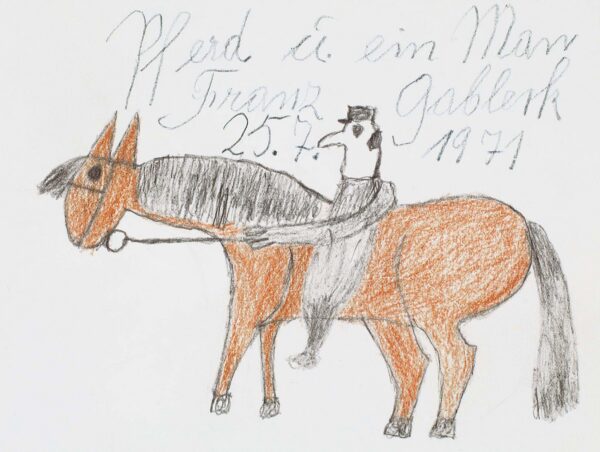 Pferd ü. ein Man
Franz Gableck
25.7.-1971